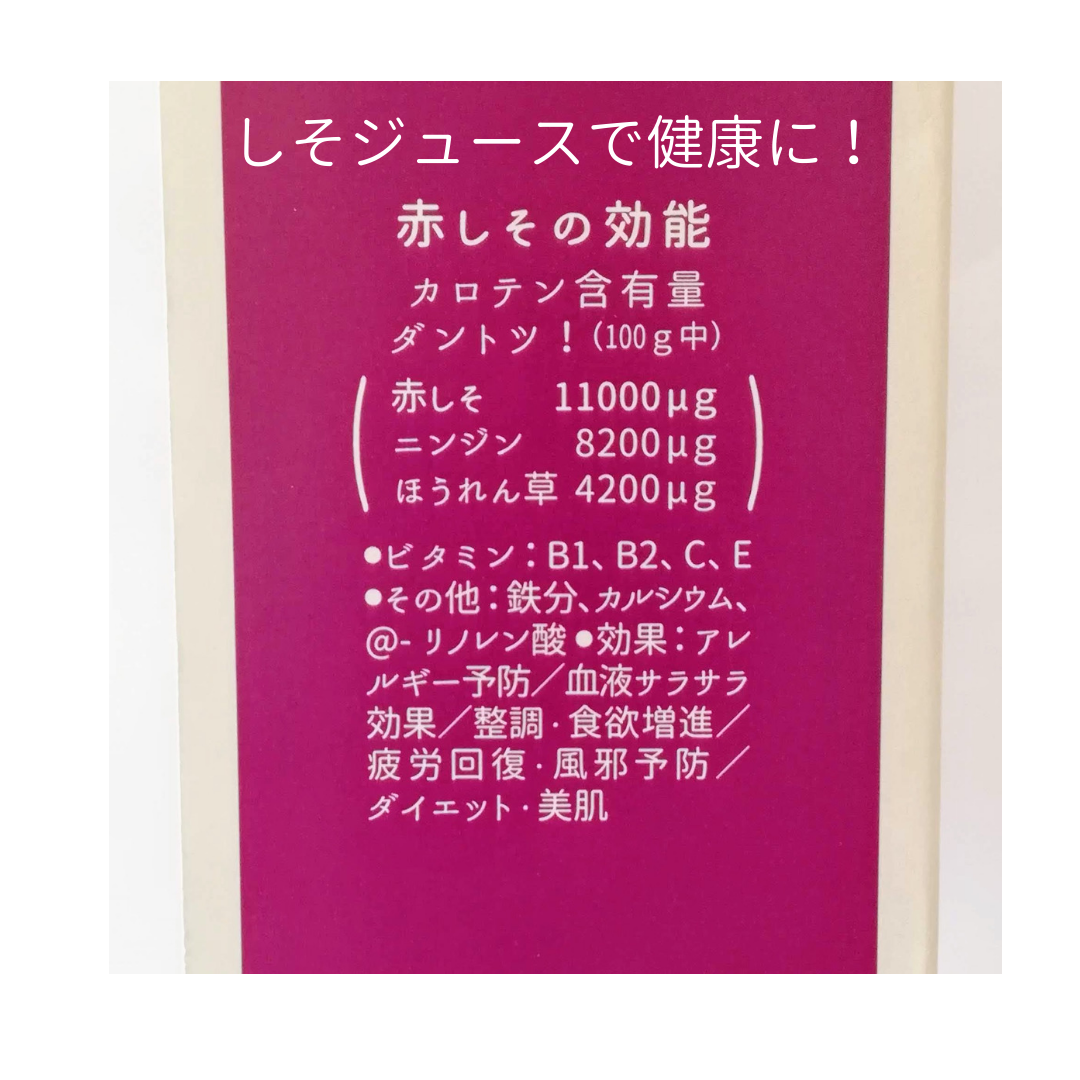 しそジュースで健康に！
赤しその効能
カロテン含有量
ダントツ！(100g中)
赤しそ 11000μg
ニンジン 8200μg
ほうれん草 4200μg
●ビタミン：B1、B2、C、E
●その他：鉄分、カルシウム、
@-リノレン酸●効果：アレ
ルギー予防／血液サラサラ
効果／整調・食欲増進／
疲労回復・風邪予防／
ダイエット・美肌